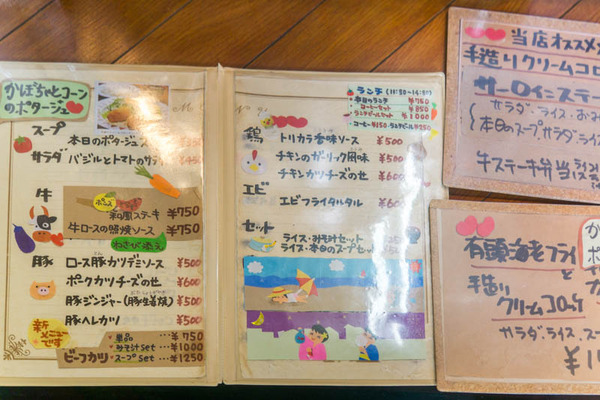 かぼちゃとコーン
のポタージュ
スープ
本日のポタージュ
サラダ バジルとトマトのサラダ ¥450
牛
ポンズ
和風ステーキ ¥750
牛ロースの蟹焼ソース ¥750
わさび添え
豚 ロース豚カツデミソース ¥500
ポークカツチーズのせ ¥600
豚ジンジャー(豚生姜焼) ¥500
豚ヘレカツ ¥500
新メニュー
です
ビーフカツ
単品 ¥750
みそ汁set ¥1000
スープset ¥1250
ランチ (11:30~14:30)
本日のランチ ¥750
コーヒーセット ¥850
ランチビールセット ¥1000
・コーヒー¥150・ランチビール¥250
鶏 トリカラ香味ソース ¥500
チキンのガーリック風味 ¥500
チキンカツチーズのせ ¥600
エビ
エビフライタルタル ¥600
セット
ライス・みそ汁セット
ライス・本日のスープセット
当店オススメ
手造りクリームコロ
サーロインステー
サラダ・ライス・おみ
本日のスープ サラダ・ライス
牛ステーキ弁当
有頭海老フライ
と
手造り
クリームコロッケ
サラダ・ライス・スー
¥1